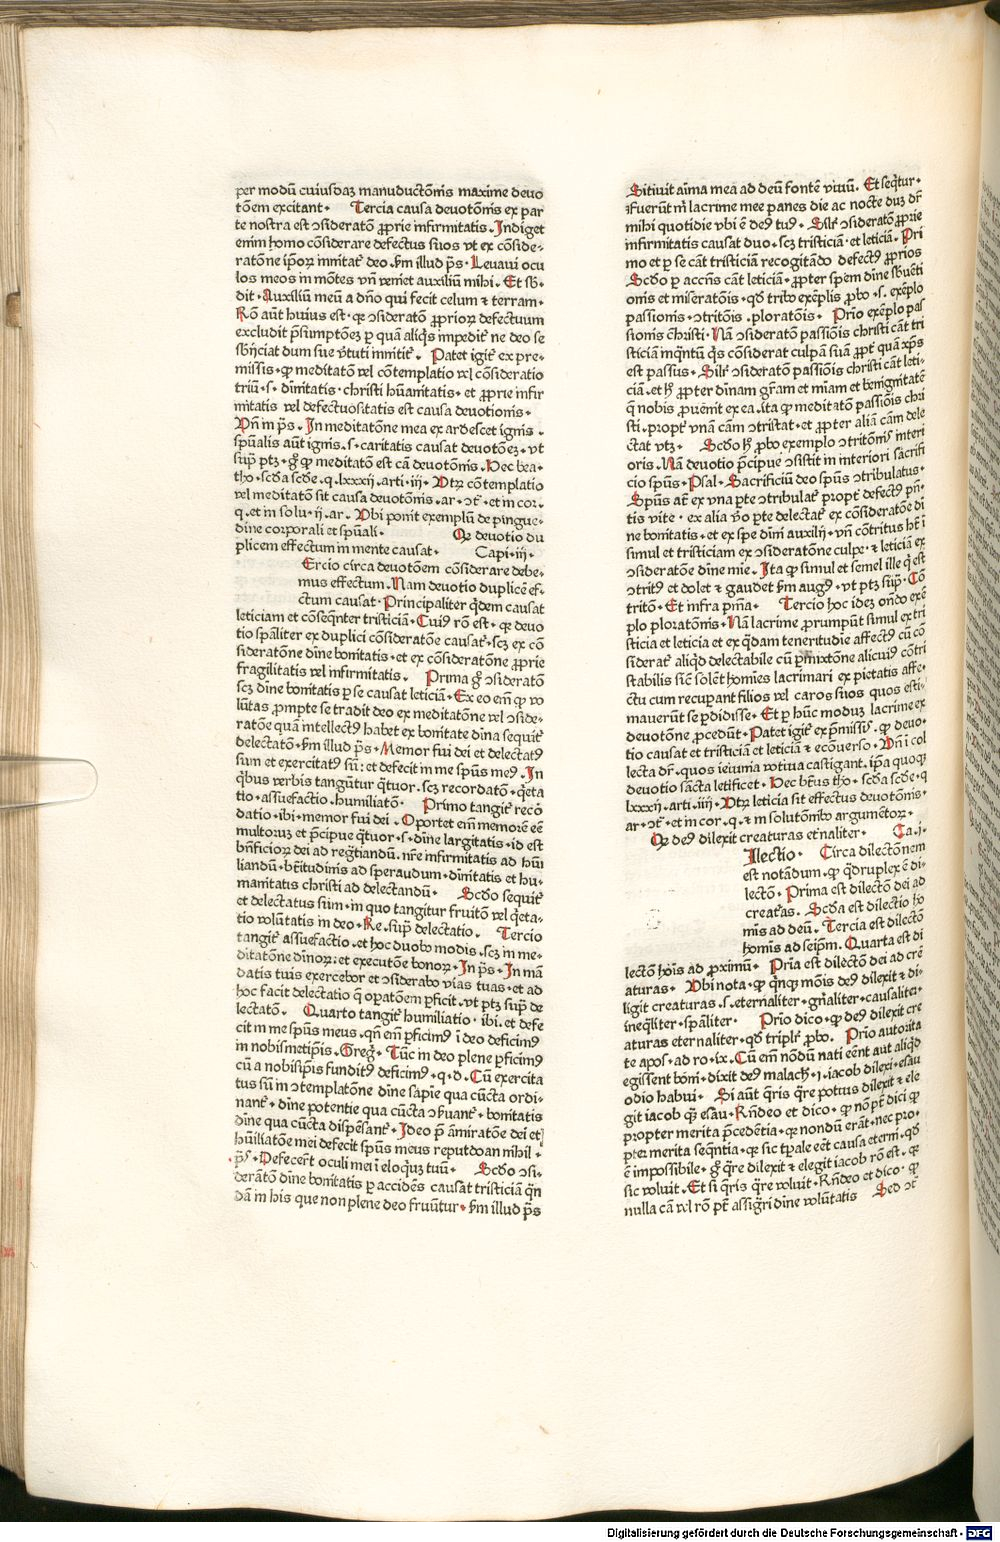 per modū cuiusdaꝫ manuductōnis maxime deuo
tōem excitant · Tercia causa deuotōnis ex par
te nostra est ↄsideratō ꝓprie infirmitatis · Indiget
enim homo cōsiderare defectus suos vt ex cōside-
ratōne ipoꝝ innitat᷑ deo · ẜm illud p̄s · Leuaui ocu
los meos in mōtes vn̄ veniet auxiliū mihi · Et sb̄-
dit · Auxiliū meū a dn̄o qui fecit celum ⁊ terram ·
Rō aūt huius est · qꝛ ↄsideratō ꝓprioꝝ defectuum
excludit p̄sumptōeꝫ ꝑ quā aliq̄s impedit᷑ ne deo se
sb̄ijciat dum sue v̄tuti innitit᷑ · Patet igit᷑ ex pre-
missis · ꝙ meditatō vel cōtemplatio vel cōsideratio
triū · s · diuinitatis · christi hūanitatis · et ꝓprie infir
mitatis vel defectuositatis est causa deuotionis ·
Vn̄ in p̄s · In meditatōne mea exardescet ignis ·
spūalis aūt ignis · s · caritatis causat deuotōeꝫ · vt
sup̄ ptꝫ · gͦ ꝙ meditatō est cā deuotōnis · Hec bea-
tho · scd̄a scd̄e · q · lxxxij · arti · iij · Vtꝝ cōtemplatio
vel meditatō sit causa deuotōnis · ar · ↄt᷑ · et in cor ·
q · et in solu · ij · ar · Vbi ponit exemplū de pingue-
dine corporali et spūali · Qꝛ deuotio du
plicem effectum in mente causat · Capi · iij ·
Ercio circa deuotōem cōsiderare debe-
mus effectum · Nam deuotio duplicē ef-
ctum causat · Principaliter q̄dem causat
leticiam et cōseqn̄ter tristiciā · Cuiꝰ rō est · qꝛ deuo
tio spāliter ex duplici cōsideratōe causat᷑ · scꝫ ex cō
sideratōne diuīne bonitatis · et ex cōsideratōne ꝓprie
fragilitatis vel infirmitatis · Prima gͦ ↄsideratō
scꝫ diuīne bonitatis ꝑ se causat leticiā · Ex eo em̄ ꝙ vo
lūtas ꝓmpte se tradit deo ex meditatōne vel ↄside-
ratōe quā intellectꝰ habet ex bonitate diuīna sequit᷑
delectatō · ẜm illud p̄s · Memor fui dei et delectatꝰ
sum et exercitatꝰ sū : et defecit in me spūs meꝰ · In
q̄bus verbis tangūtur q̄tuor · scꝫ recordatō · q̄eta
tio · assuefactio · humiliatō · Primo tangit᷑ recō
datio · ibi · memor fui dei · Oportet em̄ memorē eē
multoruꝫ et p̄cipue q̄tuor · s · diuīne largitatis · id est
bn̄ficioꝝ dei ad reg̃tiandū · nr̄e infirmitatis ad hūi
liandū · bt̄itudinis ad sperandum · diuinitatis et hu-
manitatis christi ad delectandū · Scd̄o sequit᷑
et delectatus sum · in quo tangitur fruitō vel q̄eta-
tio volūtatis in deo · Re · sup̄ delectatio · Tercio
tangit᷑ assuefactio · et hoc duob̄ modis · scꝫ in me-
ditatōne diuinoꝝ : et executōne bonoꝝ · In p̄s · In mā
datis tuis exercebor et ↄsiderabo vias tuas · et ad
hoc facit delectatio q̄ oꝑatōem ꝑficit · vt ptꝫ sup̄ de
lectatō · Quarto tangit᷑ humiliatio · ibi · et defe
cit in me spūs meus · qn̄ em̄ ꝑficimꝰ ī deo deficimꝰ
in nobismetip̄is · Greg̃ · Tūc in deo plene ꝑficimꝰ
cū a nobisip̄is funditꝰ deficimꝰ · q · d · Cū exercita
tus sū in ↄtemplatōne diuīne sapīe qua cūcta ordi-
nant᷑ · diuīne potentie qua cūcta ↄẜuant᷑ · bonitatis
diuīne qua cūcta dispēsant᷑ · Ideo p̄ āmiratōe dei et
hūiliatōe mei defecit spūs meus reputdo an nihil ·
p̄s · Defecert̄ oculi mei ī eloquꝫ tuū · Scd̄o ↄsi-
deratō diuīne bonitatis ꝑ accidēs causat tristiciā qn̄
dā in his que non plene deo fruūtur · ẜm illud p̄s
Sitiuit aīma mea ad deū fontē viuū · Et seq̄tur ·
Fuerūt m̄ lacrime mee panes die ac nocte duꝫ dr̄
mihi quotidie vbi ē deꝰ tuꝰ · Silr̄ ↄsideratō ꝓprie
infirmitatis causat duo · scꝫ tristiciā · et leticiā · Pri
mo et ꝑ se cāt tristiciā recogitādo defectꝰ ꝓprios
Scd̄o ꝑ accn̄s cāt leticiā · ꝓpter spem diuīne sb̄uēti
onis et miseratōis · qd̄ trib̄ exēplis ꝓbo · s · exēplo
passionis · ↄtritōis · ploratōnis · Prīo exēplo pas
sionis christi · Nā ↄsideratō passiōis christi cāt tri
sticiā inq̄ntū q̄s cōsiderat culpā suā ꝓpt᷑ quā xp̄s
est passus · Silr̄ ↄsideratō passiōis christi cāt leti-
ciā · et hͦ ꝓpter diuīnam gr̄am et mīam et benignitatē
q̄ nobis ꝓuenit ex ea · ita ꝙ meditatō passiōis chri
sti · propt᷑ vnā cām ↄtristat · et ꝓpter aliā cām dele
ctat vtꝫ · Scd̄o hͦ ꝓbo exemplo ↄtritōnis interi
oris · Nā deuotio p̄cipue ↄsistit in interiori sacrifi
cio spūs · Psal · Sacrificiū deo spūs ↄtribulatus ·
Spūs at̄ ex vna ꝑte ↄtribulat᷑ propt᷑ defectꝰ p̄n-
tis vite · ex alia v̄o ꝑte delectat᷑ ex cōsideratōe di
ne bonitatis · et ex spe diuīni auxilij · vn̄ cōtritus hēt ī
simul et tristiciam ex ↄsideratōne culpe · ⁊ leticiā ex
ↄsideratōe diuīne mīe · Ita ꝙ simul et semel ille q̄ est
ↄtritꝰ et dolet ⁊ gaudet ẜm augꝰ · vt ptꝫ sup̄ · Cō
tritō · Et infra p̄nīa · Tercio hoc ideꝫ on̄do exē
plo ploratōnis · Nā lacrime ꝓrumpūt simul ex tri
sticia et leticia et ex q̄dam teneritudīe affectꝰ cū cō
siderat᷑ aliq̄d delectabile cū ꝑmixtōne alicuiꝰ cōtri
stabilis sīc solēt hoīes lacrimari ex pietatis affe-
ctu cum recuꝑant filios vel caros suos quos esti-
mauerūt se ꝑdidisse · Et ꝑ hūc moduꝫ lacrime ex
deuotōne ꝓcedūt · Patet igit᷑ ex p̄missis · ꝙ deuo-
tio causat et tristiciā et leticiā ⁊ ecōuerso · Vn̄ ī col
lecta dr̄ · quos ieiunia votiua castigant · ip̄a quoqꝫ
deuotio sācta letificet · Hec bt̄us tho · scd̄a scd̄e · q
lxxxij · arti · iiij · Vtꝝ leticia sit effectus deuotōnis ·
ar · ↄt᷑ · et in cor · q · ⁊ in solutōnib̄ argumētoꝝ ·
Qꝛ deꝰ dilexit creaturas et᷑naliter · Ca · j ·
Ilectio · Circa dilectōnem
est notādum · ꝙ q̄druplex ē di-
lectō · Prima est dilectō dei ad
creat᷑as · Scd̄a est dilectio ho
mīs ad deū · Tercia est dilectō
homīs ad seip̄m · Quarta est di
lectō hoīs ad ꝓximū · Prīa est dilectō dei ad cre
aturas · Vbi nota · ꝙ q̄nqꝫ mōis deꝰ dilexit ⁊ di-
ligit creaturas · s · eternaliter · gn̄aliter · causaliter ·
ineq̄liter · spāliter · Prīo dico · ꝙ deꝰ dilexit cre
aturas eternaliter · qd̄ triplr̄ ꝓbo · Prīo autorita
te apos · ad ro · ix · Cū em̄ nōdū nati eēnt aut aliq̄d
egissent boni · dixit deꝰ malach̄ · i · iacob dilexi · esau
odio habui · Si aūt q̄ris q̄re potius dilexit ⁊ ele
git iacob q̄ꝫ esau · Rn̄deo et dico · ꝙ nō pt᷑ dici ꝙ
propter merita p̄cedētia · qꝛ nondū erāt · nec pro-
pter merita seqn̄tia · qꝛ sic tp̄ale eēt causa eterni · qd̄
ē impossibile · gͦ q̄re dilexit ⁊ elegit iacob rō est · qꝛ
sic voluit · Et si q̄ris q̄re voluit · Rn̄deo et dico · ꝙ
nulla cā vel rō pt᷑ assig̃ri diuīne volūtatis Sed ↄt᷑
Digitalisierung gefördert durch die Deutsche Forschungsgemeinschaft - DFG